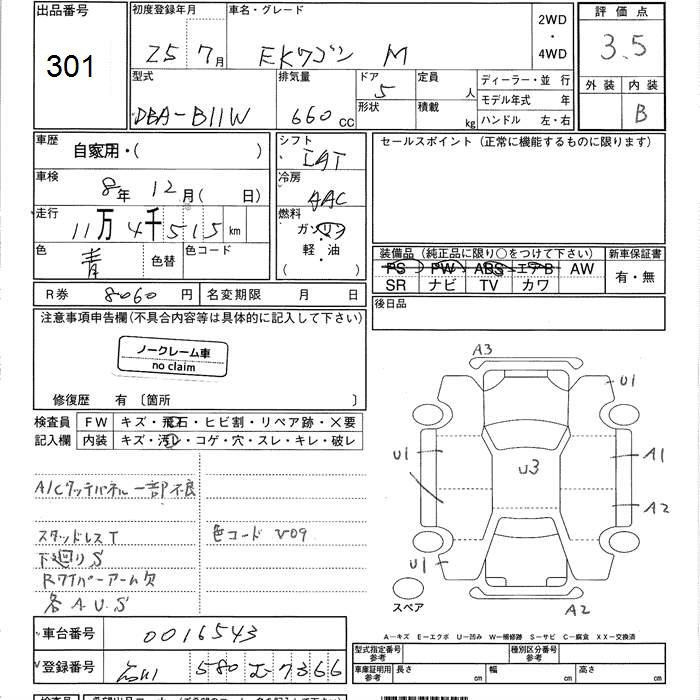 出品番号
301
初度登録年月
25 7月
車名・グレード
EKワゴン M
2WD
・
4WD
評価点
3.5
外装 内装
B
型式
DBA-B11W
排気量
660 CC
ドア
5
形状
定員
人
積載
kg
ディーラー・並行
モデル年式 年
ハンドル 左・右
車歴
自家用・( )
車検
8年 12月( 日)
走行
11万4千515km
色
青
色替
色コード
シフト
IAT
冷房
AAC
燃料
ガソリン
軽・油
( )
セールスポイント (正常に機能するものに限ります)
装備品 (純正品に限り○をつけて下さい)
PS PW ABS エアB AW
SR ナビ TV カワ
新車保証書
有・無
R券 8060 円 名変期限 月 日
後日品
注意事項申告欄(不具合内容等は具体的に記入して下さい)
ノークレーム車
no claim
修復歴 有 〔箇所 〕
検査員
記入欄
FW キズ・飛石・ヒビ割・リペア跡・×要
内装 キズ・汚れ・コゲ・穴・スレ・キレ・破レ
A/Cタッチパネル一部不良
スタッドレスT
下廻りS
Rワイパーアーム欠
各A.U.S
色コード V09
A3
U1
U1
U3
A1
A2
U1
A2
スペア
A-キズ E-エクボ U-凹み W-補修跡 S-サビ C-腐食 XX-交換済
車台番号 0016543
登録番号 580 7366
型式指定番号
参考
種別区分番号
参考
車庫証明用
参考
長さ cm 幅 cm 高さ cm